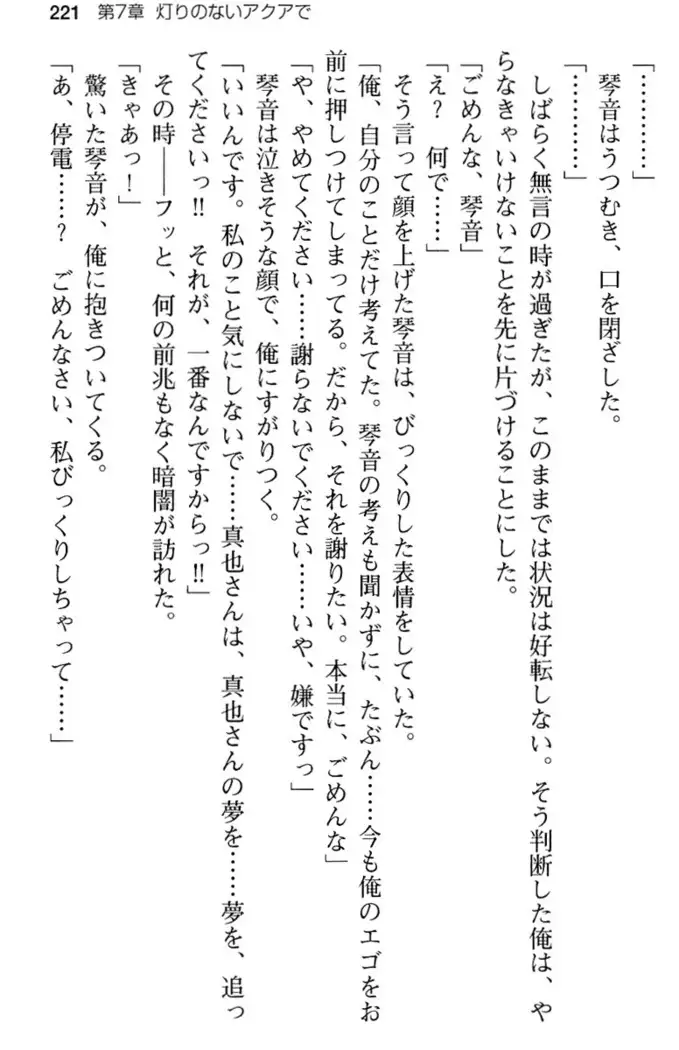 221 第7章 灯りのないアクアで
「…………」
琴音はうつむき、口を閉ざした。
「…………」
しばらく無言の時が過ぎたが、このままでは状況は好転しない。そう判断した俺は、や
らなきゃいけないことを先に片づけることにした。
「ごめんな、琴音」
「え？　何で……」
そう言って顔を上げた琴音は、びっくりした表情をしていた。
「俺、自分のことだけ考えてた。琴音の考えも聞かずに、たぶん……今も俺のエゴをお
前に押しつけてしまってる。だから、それを謝りたい。本当に、ごめんな」
「や、やめてください……謝らないでください……いや、嫌ですっ」
琴音は泣きそうな顔で、俺にすがりつく。
「いいんです。私のこと気にしないで……真也さんは、真也さんの夢を……夢を、追っ
てくださいっ!!　それが、一番なんですからっ!!」
その時――フッと、何の前兆もなく暗闇が訪れた。
「きゃあっ！」
驚いた琴音が、俺に抱きついてくる。
「あ、停電……？　ごめんなさい、私びっくりしちゃって……」